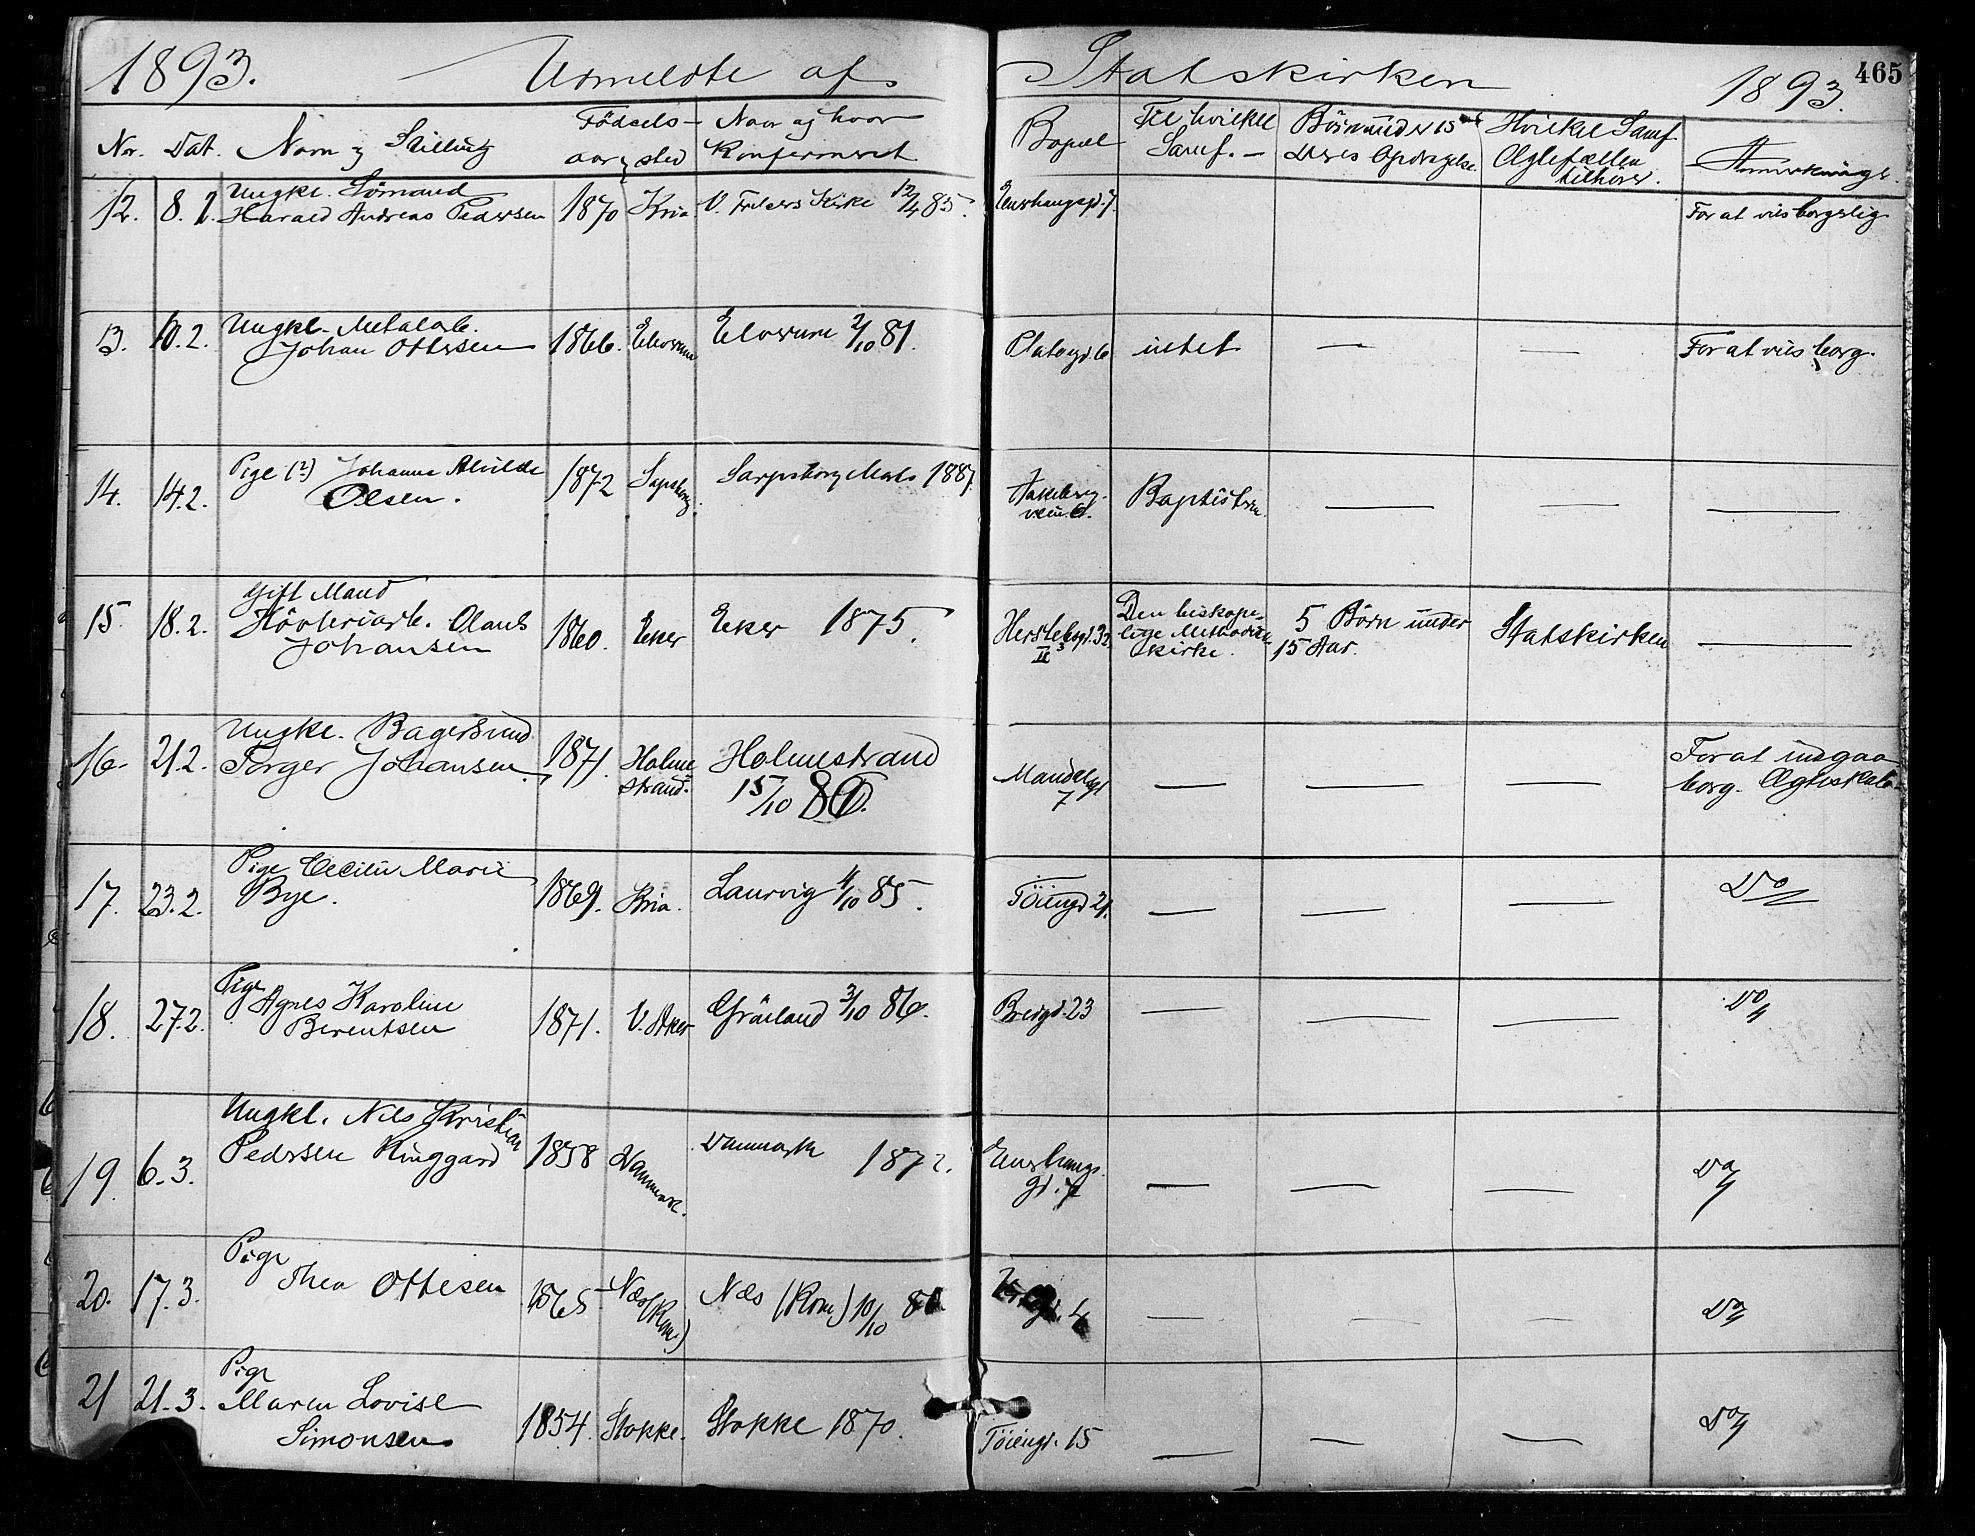 1893. Udmeldte af Statskirken 1893. 465
Nr. Dat. Navn og Stilling Födsels- aar og sted Naar og hvor Konfirmeret Bopæl Til hvilket Samf. Börn under 15 Aar Deres Opdragelse. Hvilket Samf. Ægtefællen tilhører. Anmærkninger.
12. 8. 2. Ungkl. Sömand
Harald Andreas Pedersen 1870 Kria V. Frikers Kirke 12/4 85. Enerhaugsgd. 7. For at vies borgerlig
13. 10. 2. Ungkl. Metalarb.
Johan Ottersen 1866. Elverum Elverum 2/10 81. Platousgd. 6 intet — — For at vies borg.
14. 14. 2. Pige (?) Johanne Alvilde
Olsen. 1872 Sarpsborg. Sarpsborg Marts 1887. Jakobsveien 6. Baptistern. — — —
15. 18. 2. Gift Mand
Hövleriarb. Olaus
Johansen 1860. Eker Eker 1875. Herslebsgd. 33 II Den biskope-
lige Methodist-
kirke. 5 Börn under
15 Aar. Statskirken —
16. 21.2. Ungkl. Bagersvend
Torger Johansen. 1871. Holme
strand. Holmestrand
15/10 86. Mandalsgd
7 — — — For at indgaa
borg. Ægteskab.
17. 23.2. Pige Cecilie Marie
Bye. 1869. Kria. Laurvig 4/10 85. Töiengd 21. — — — Do
18. 27.2. Pige
Agnes Karoline
Berentsen 1871. V. Aker Grönland 3/10 86. Breigd. 23 — — — Do
19. 6. 3. Ungkl. Nils Kristian
Pedersen Ringgard 1858 Danmark. Danmark 1872. Enerhaugs-
gd. 7 — — — Do
20. 17. 3. Pige
Thea Ottesen 1865 Næs (Rom.) Næs (Rom) 10/10 gd. 4 — — — Do
21 21. 3. Pige
Maren Lovise
Simonsen 1854. Stokke. Stokke 1870. Töiengd. 15 — — — Do